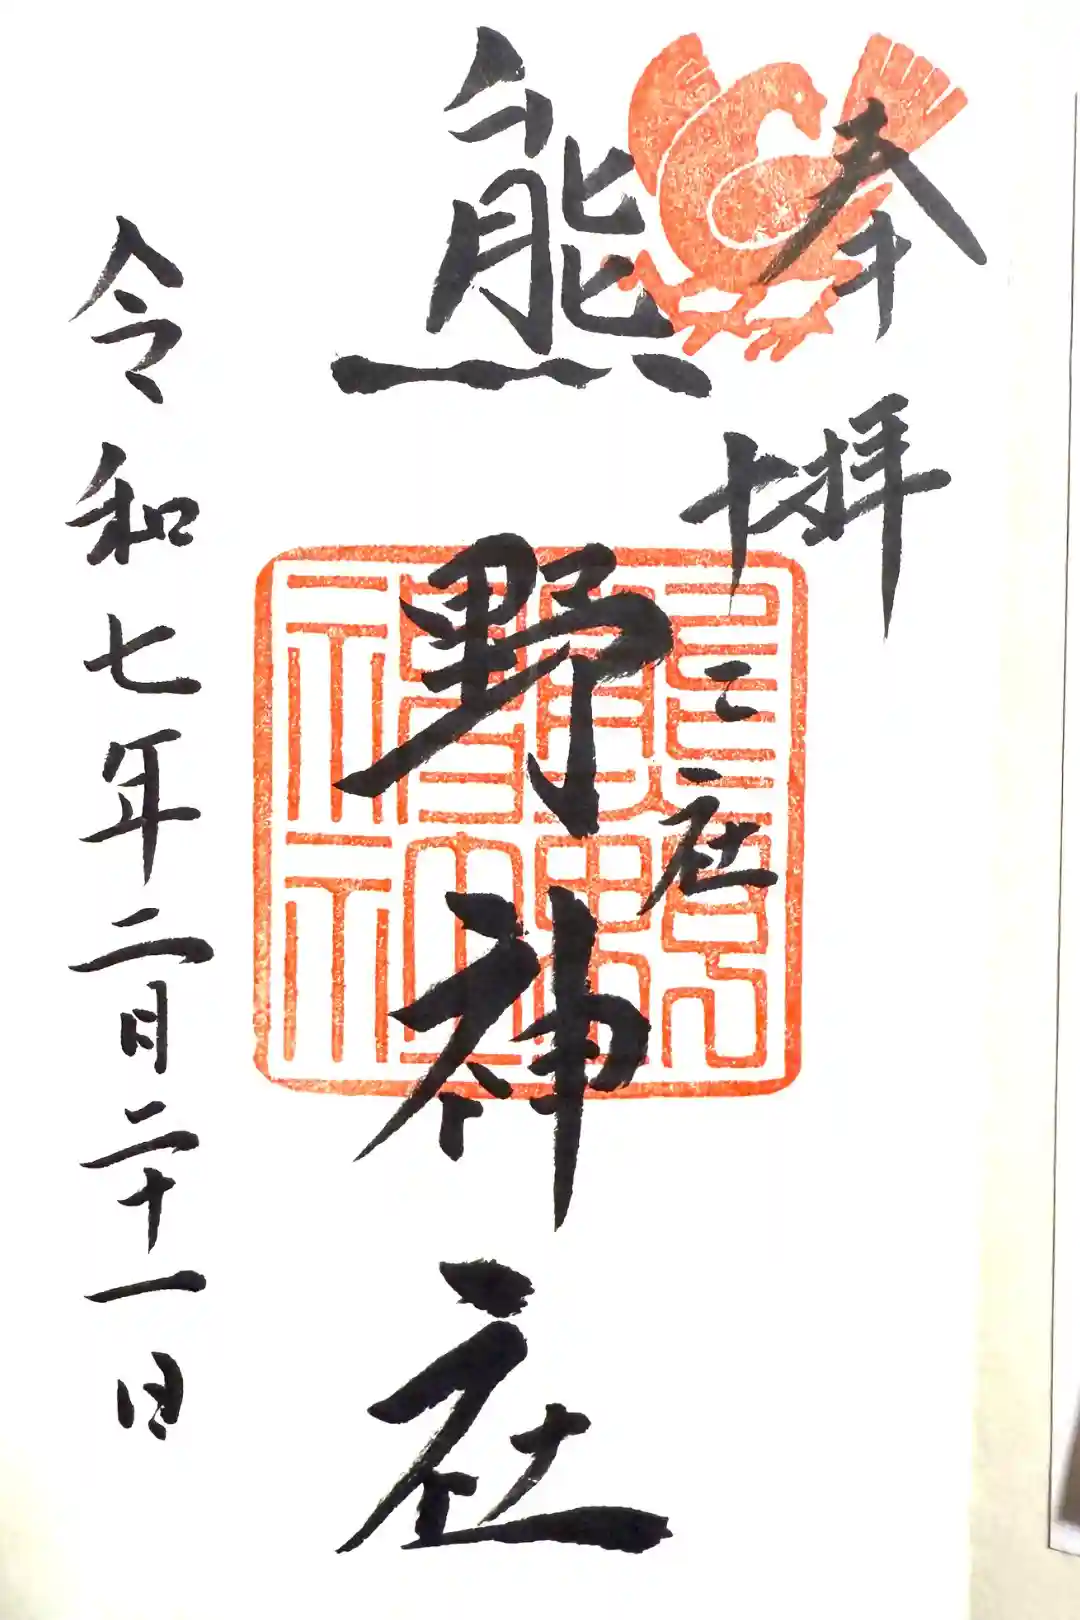 奉拝
十二社
熊野神社
令和七年二月二十一日